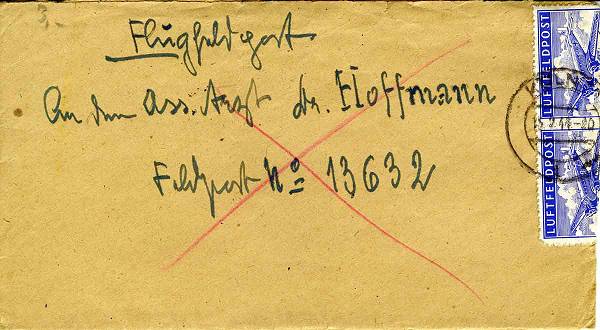 3.
Flugfeldpost
An den Ass. Arzt dr. Hoffmann
Feldpost No 13632
LUFTFELDPOST
LUFTFELDPOST
KÖLN